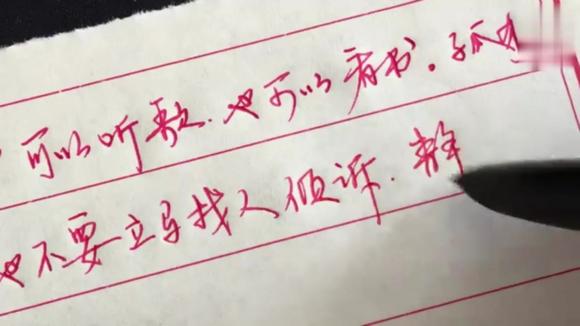 可以听歌.也可以看书。孤
也不要立马找人倾诉.